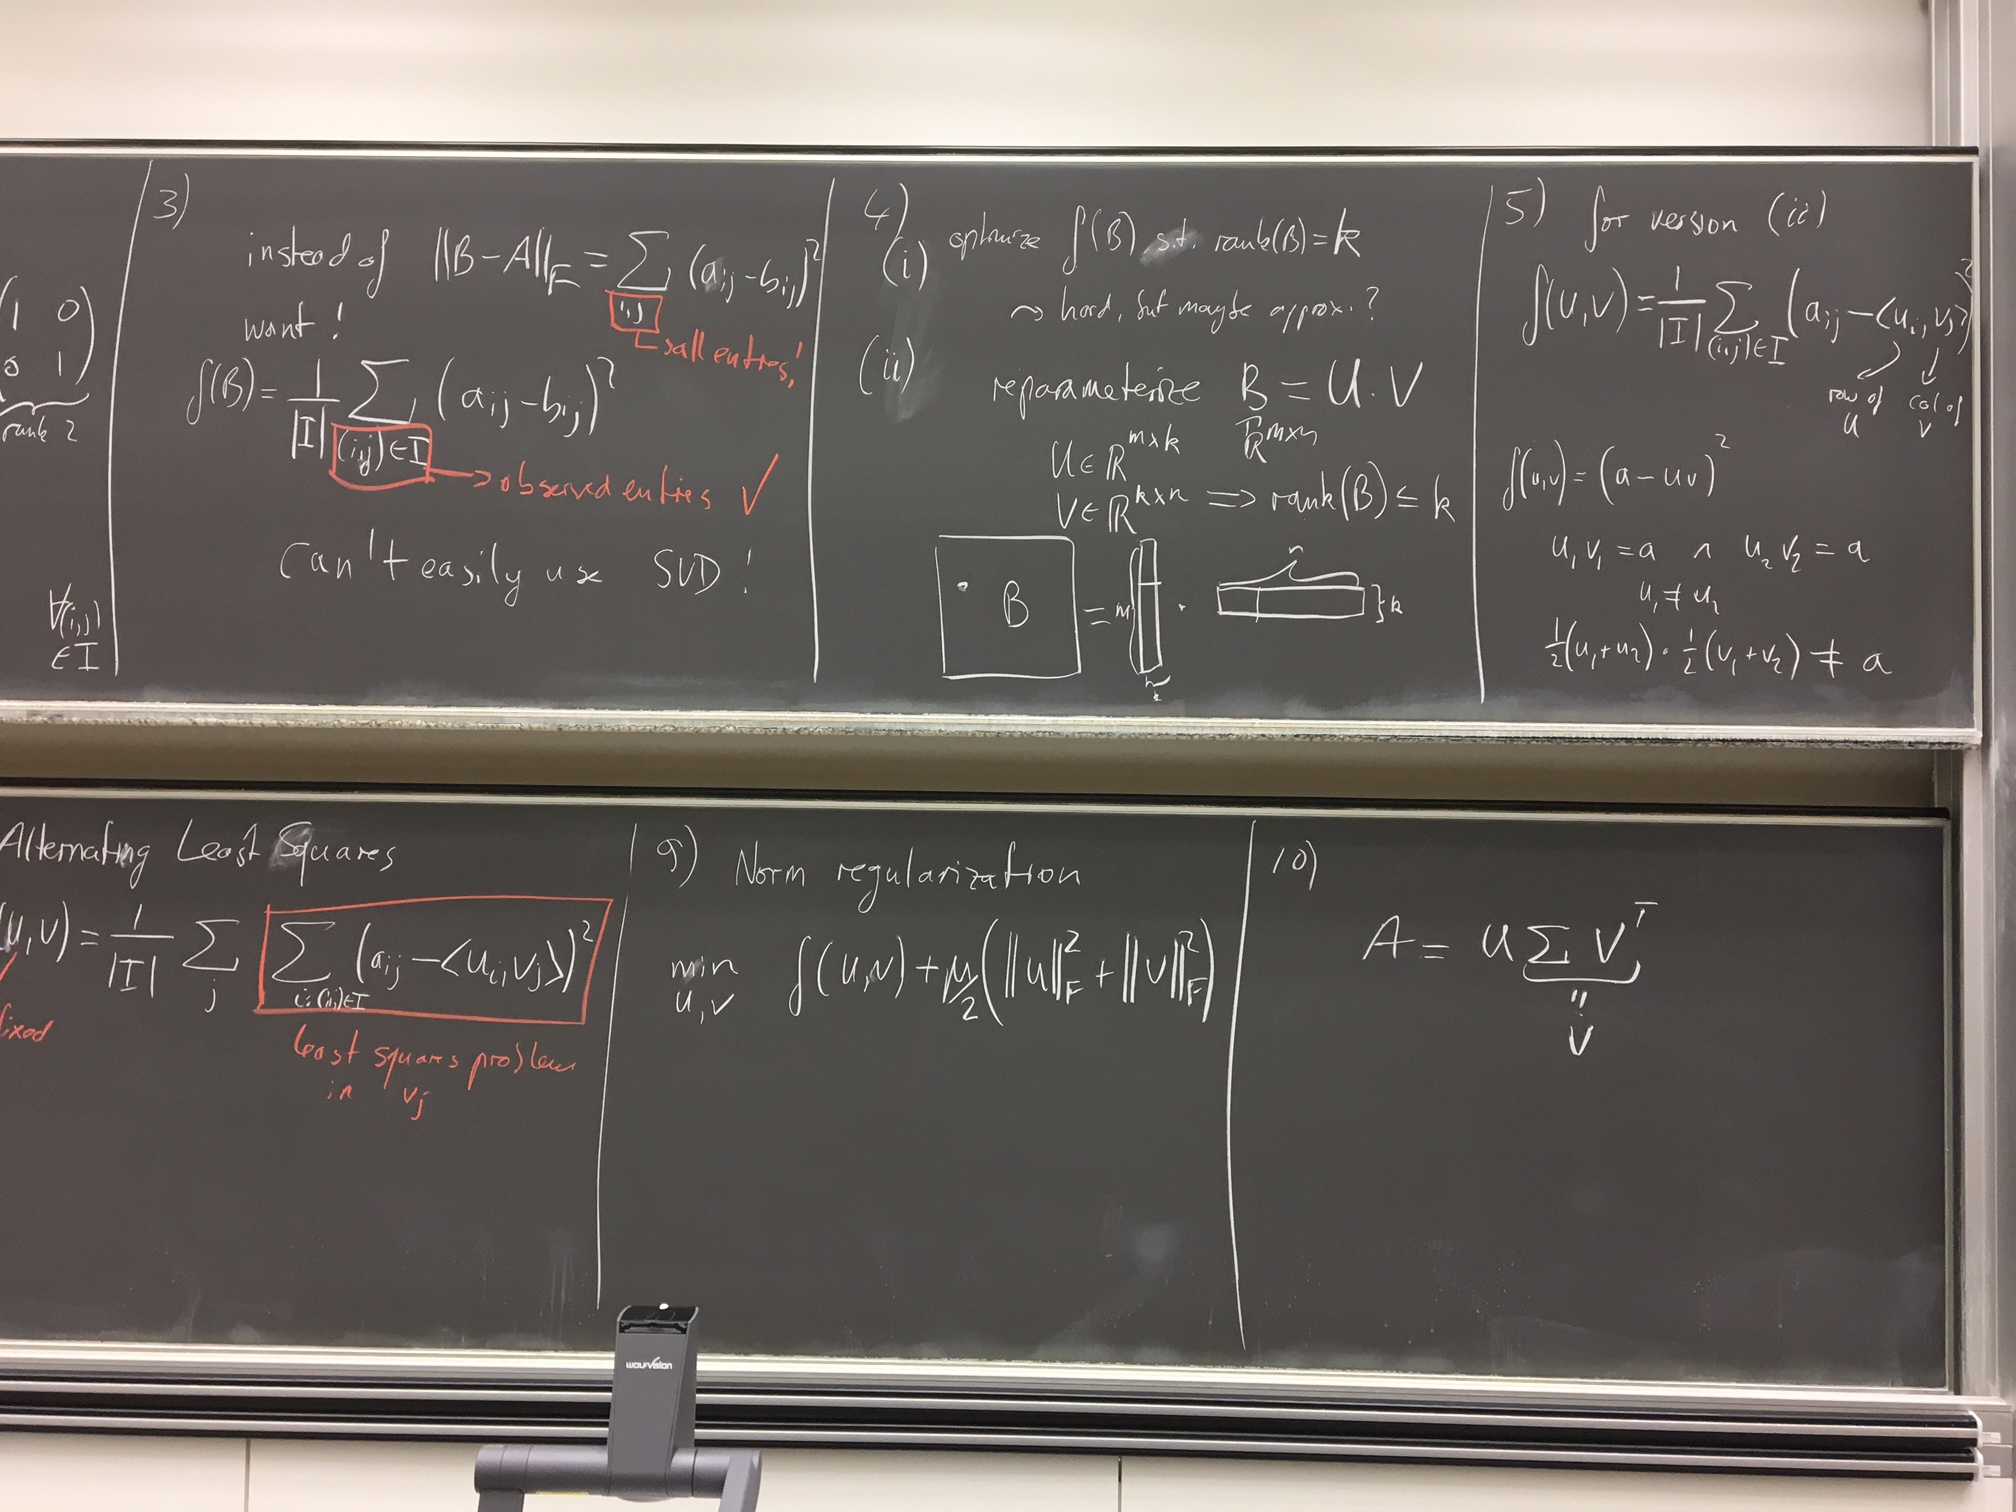 1 0
0 1
rank 2
∀(i,j)
∈ I
3)
instead of ||B-A||_F = Σ_{i,j} (a_ij - b_ij)²
↳ all entries!
want!
f(B) = 1/|I| Σ_{(i,j)∈I} (a_ij - b_ij)²
→ observed entries ✓
Can't easily use SVD!
4)
(i) optimize f(B) s.t. rank(B) = k
~> hard, but maybe approx.?
(ii) reparameterize B = U · V
U ∈ ℝ^{m×k} ℝ^{m×n}
V ∈ ℝ^{k×n} ⟹ rank(B) ≤ k
n
B = m · } k
k
5) for version (ii)
f(U,V) = 1/|I| Σ_{(i,j)∈I} (a_ij - <u_i, v_j>)²
row of U
col of V
f(u,v) = (a - uv)²
u₁v₁ = a ∧ u₂v₂ = a
u₁ ≠ u₂
½(u₁+u₂) · ½(v₁+v₂) ≠ a
Alternating Least Squares
(U,V) = 1/|I| Σ_j Σ_{i:(i,j)∈I} (a_ij - <u_i, v_j>)²
fixed
least squares problem
in v_j
9) Norm regularization
min_{U,V} f(U,V) + μ/2 (||U||²_F + ||V||²_F)
10)
A = U Σ V^T
=
V
wolfvision